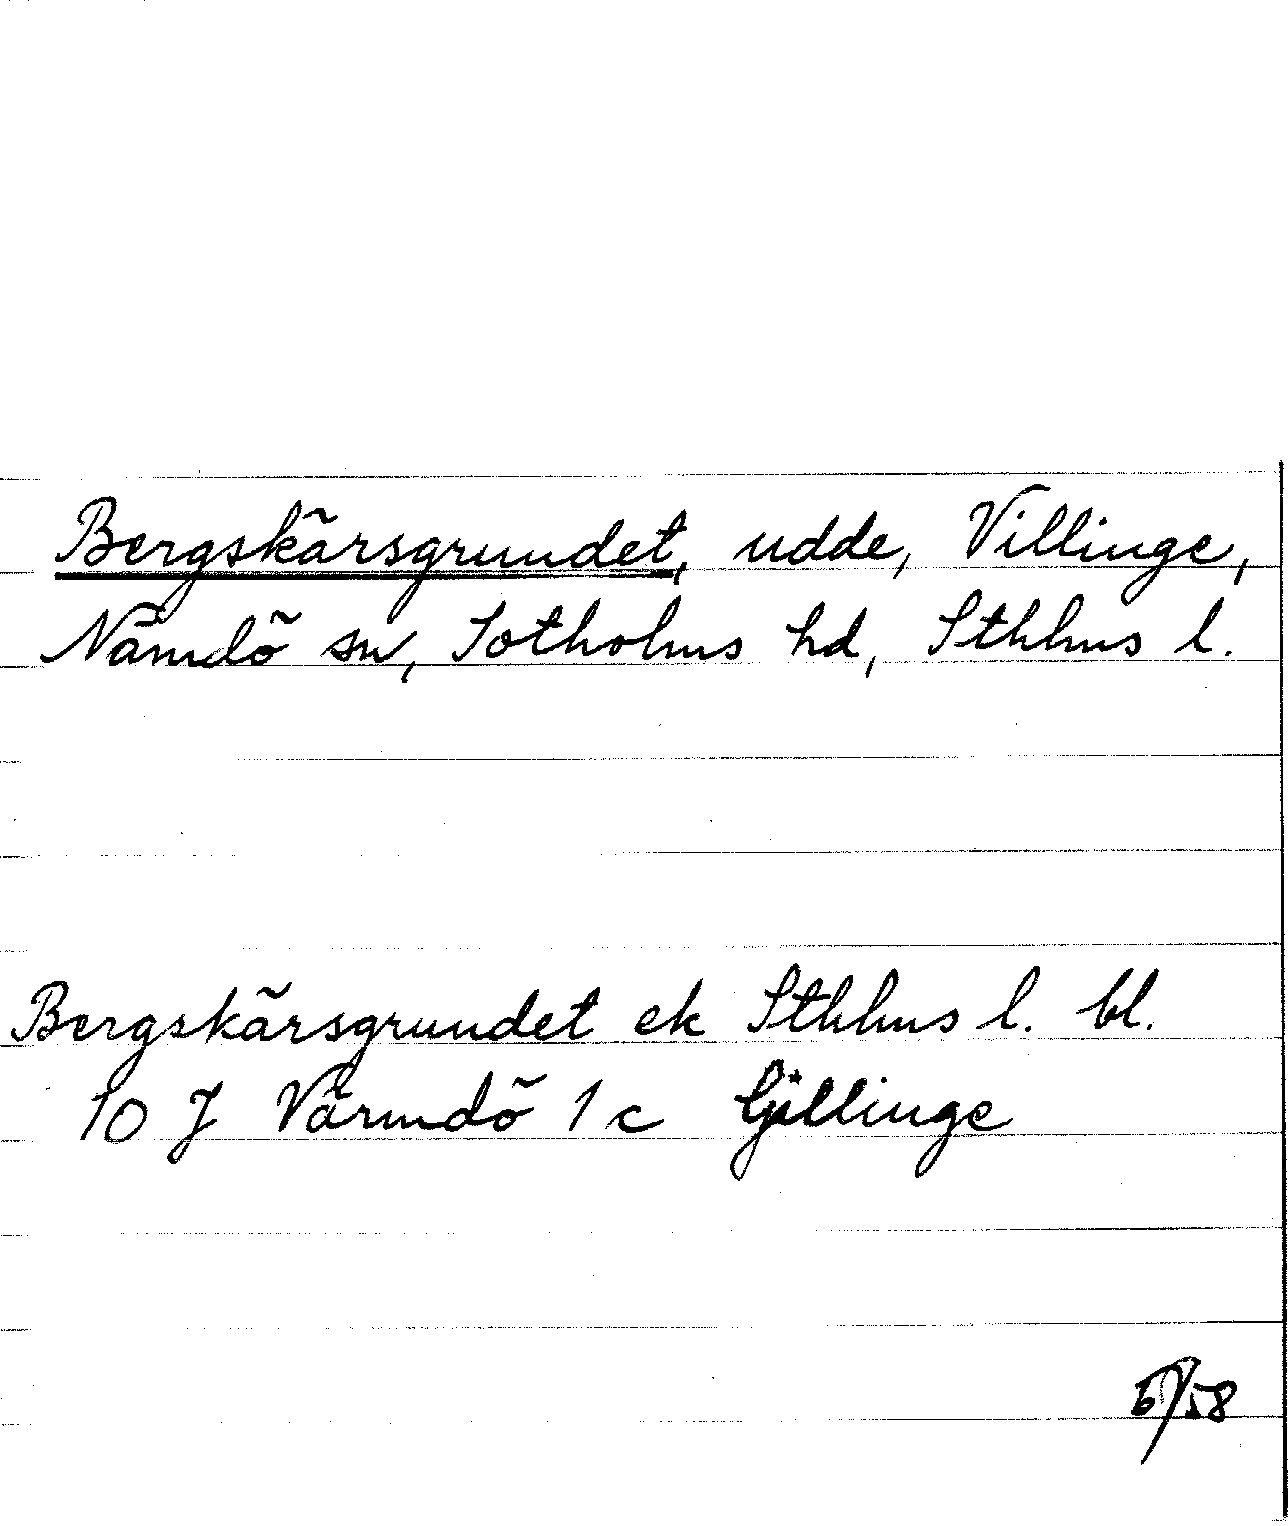 Bergskärsgrundet, udde, Villinge,
Nämdö sn, Sotholms hd, Sthlms l.
Bergskärsgrundet ek Sthlms l. bl.
10 J Värmdö 1 c Gillinge